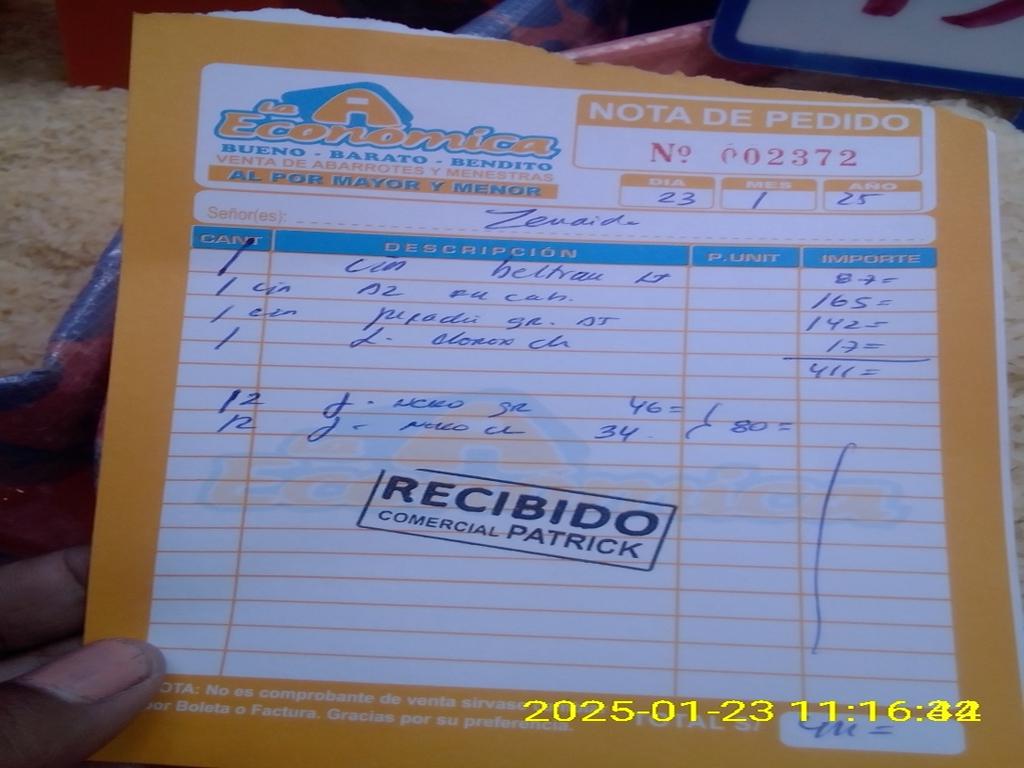 La
Económica
BUENO - BARATO - BENDITO
VENTA DE ABARROTES Y MENESTRAS
AL POR MAYOR Y MENOR
NOTA DE PEDIDO
Nº 002372
DIA MES AÑO
23 1 25
Señor(es): Zenaida
CANT DESCRIPCIÓN P.UNIT IMPORTE
1 cin beltran 87=
1 cin 165=
1 cin gr. 142=
1 17=
411=
12 gr 46=
12 34. 80=
La Económica
RECIBIDO
COMERCIAL PATRICK
NOTA: No es comprobante de venta
por Boleta o Factura. Gracias por su preferencia.
TOTAL S/ 411=
2025-01-23 11:16:42